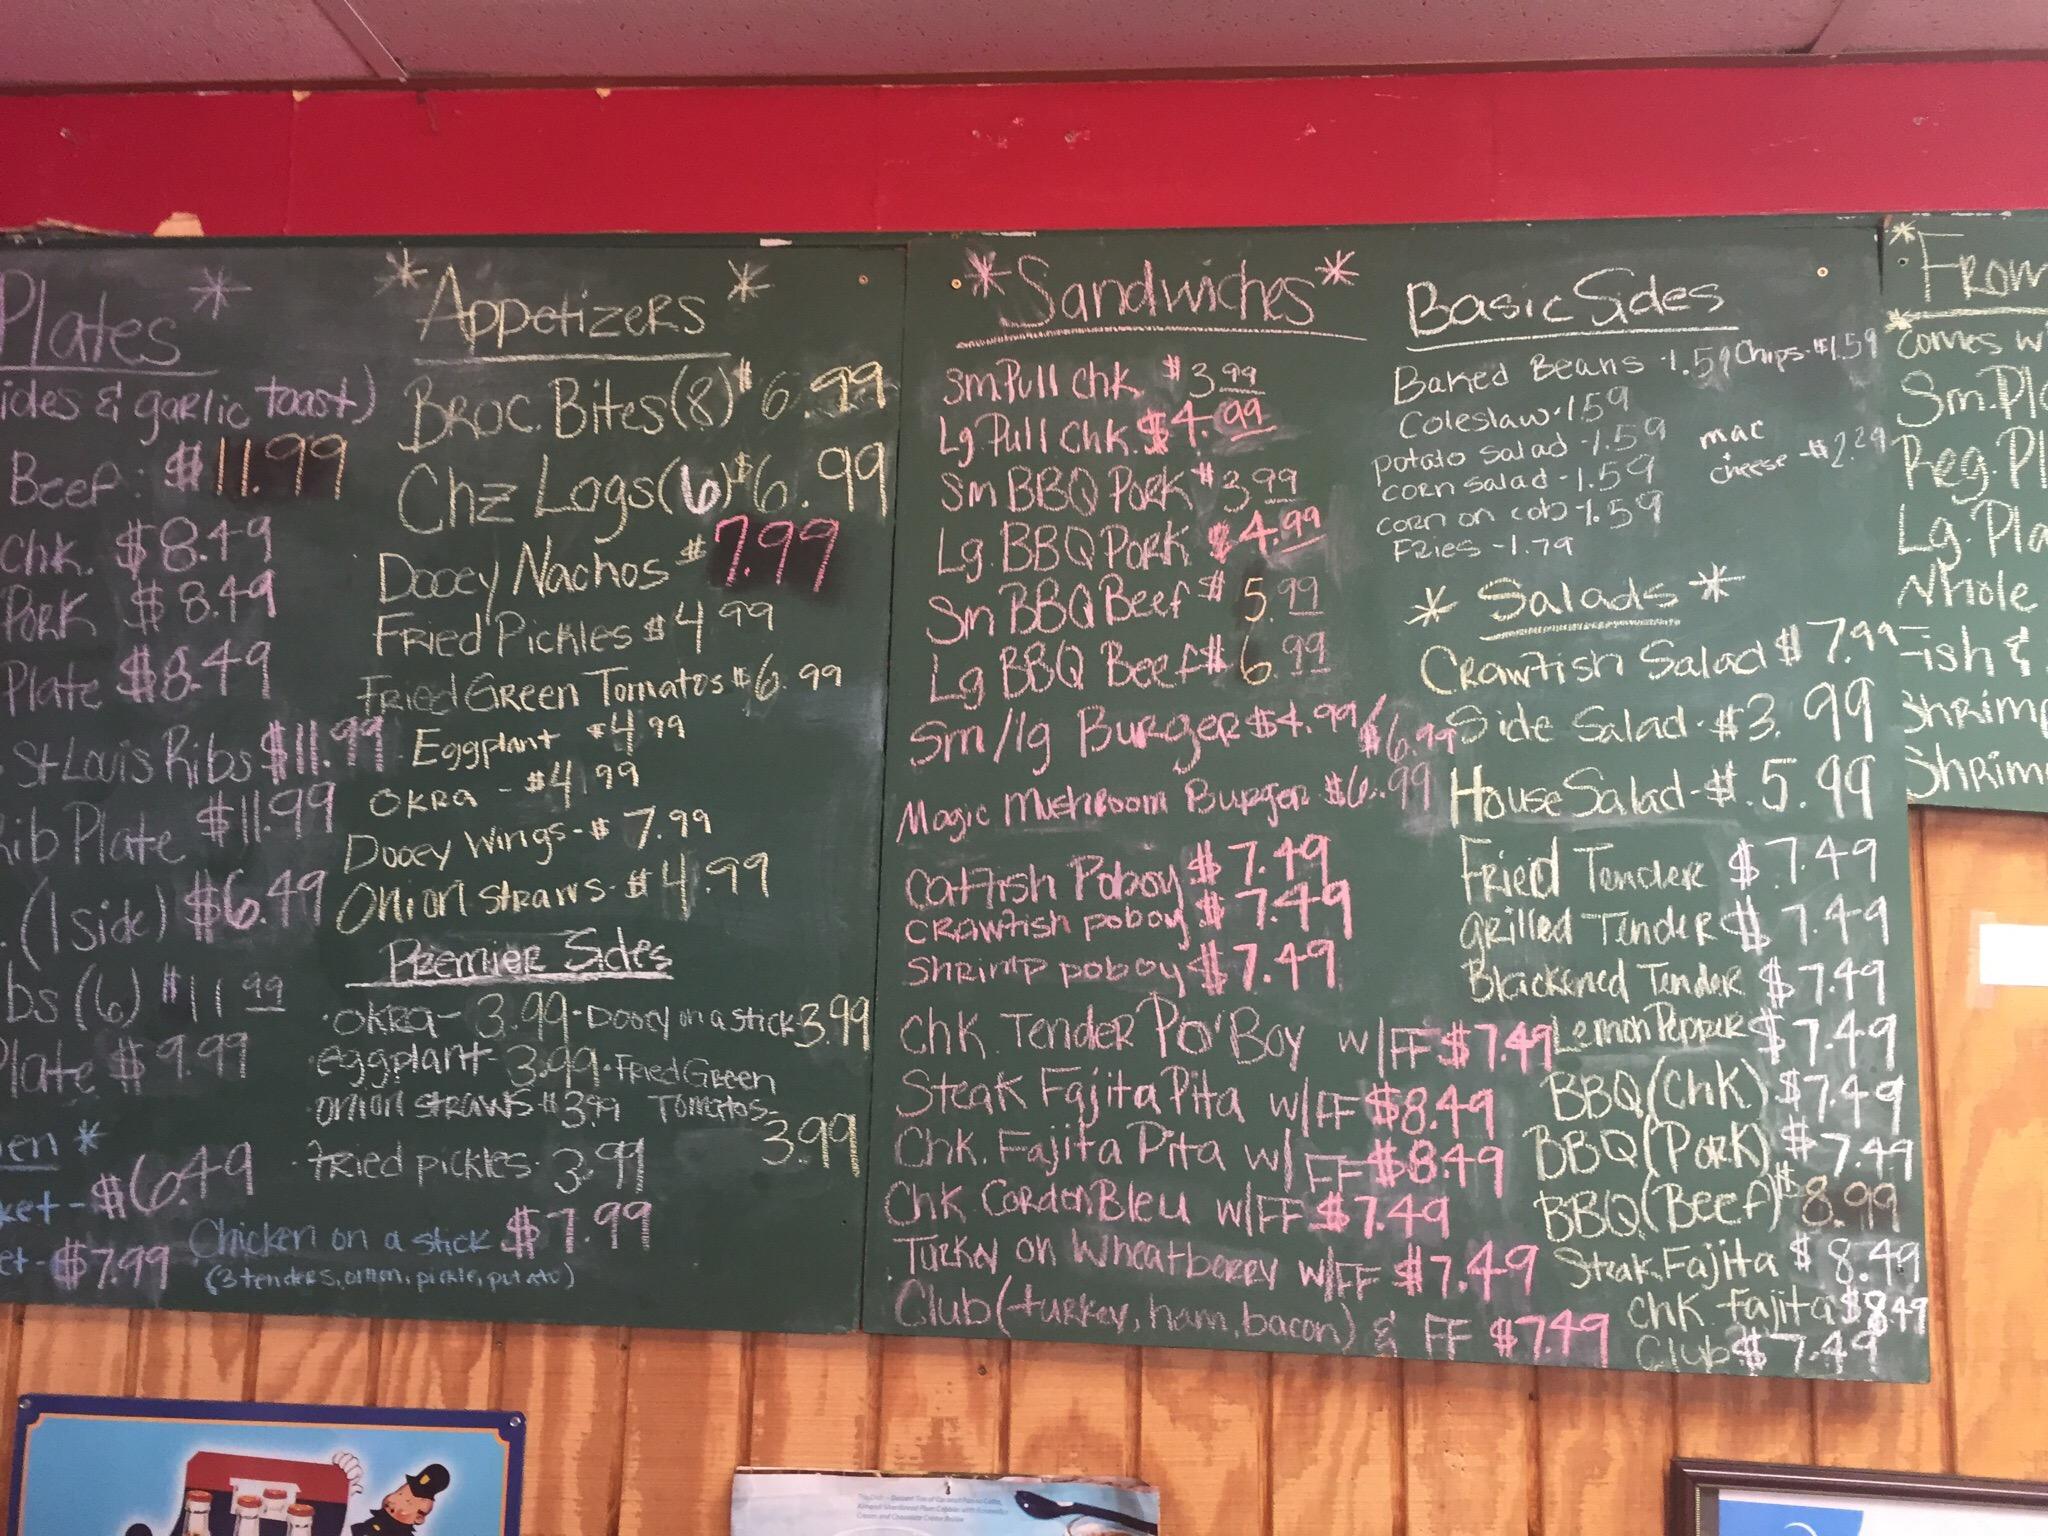 Plates *
ides & garlic toast)
Beef: $11.99
Chk. $8.49
Pork $8.49
Plate $8.49
St Louis Ribs $11.99
Rib Plate $11.99
(1 side) $6.49
bs (6) $11 99
Plate $9.99
en *
ket - $6.49
et - $7.99
Chicken on a stick $7.99
(3 tenders, onion, pickle, potato)
* Appetizers *
Broc. Bites (8) $6.99
Chz Logs (6) $6.99
Dooey Nachos $7.99
Fried Pickles $4 99
Fried Green Tomatos $6.99
Eggplant $4.99
Okra - $4.99
Dooey Wings - $7.99
Onion Straws - $4.99
Premier Sides
·okra - 3.99 ·Dooey on a stick 3.99
·eggplant - 3.99 ·Fried Green
onion straws $3.99 Tomatos
3.99
·fried pickles · 3.99
* Sandwiches *
Sm Pull Chk $3 99
Lg. Pull Chk. $4.99
Sm BBQ Pork $3 99
Lg. BBQ Pork $4.99
Sm BBQ Beef $5.99
Lg BBQ Beef $6.99
Sm/lg Burger $4.99/$6.99
Magic Mushroom Burger $6.99
Catfish Poboy $7.49
Crawfish poboy $7.49
Shrimp poboy $7.49
Chk. Tender Po'Boy w/FF $7.49
Steak Fajita Pita w/FF $8.49
Chk. Fajita Pita w/FF $8.49
Chk Cordon Bleu w/FF $7.49
Turkey on Wheatberry w/FF $7.49
Club (turkey, ham, bacon) & FF $7.49
Basic Sides
Baked Beans - 1.59 Chips - $1.59
Coleslaw - 1.59
potato salad - 1.59
corn salad - 1.59
corn on cob - 1.59
Fries - 1.79
mac
+
cheese - $2.29
* Salads *
Crawfish Salad $7.99
Side Salad - $3.99
House Salad - $5.99
Fried Tender $7.49
Grilled Tender $7.49
Blackened Tender $7.49
Lemon Pepper $7.49
BBQ (Chk) $7.49
BBQ (Pork) $7.49
BBQ (Beef) $8.99
Steak Fajita $8.49
Chk Fajita $8.49
Club $7.49
* From
* comes w
Sm. Pl
Reg. Pl
Lg. Pla
Whole
Fish &
Shrimp
Shrim